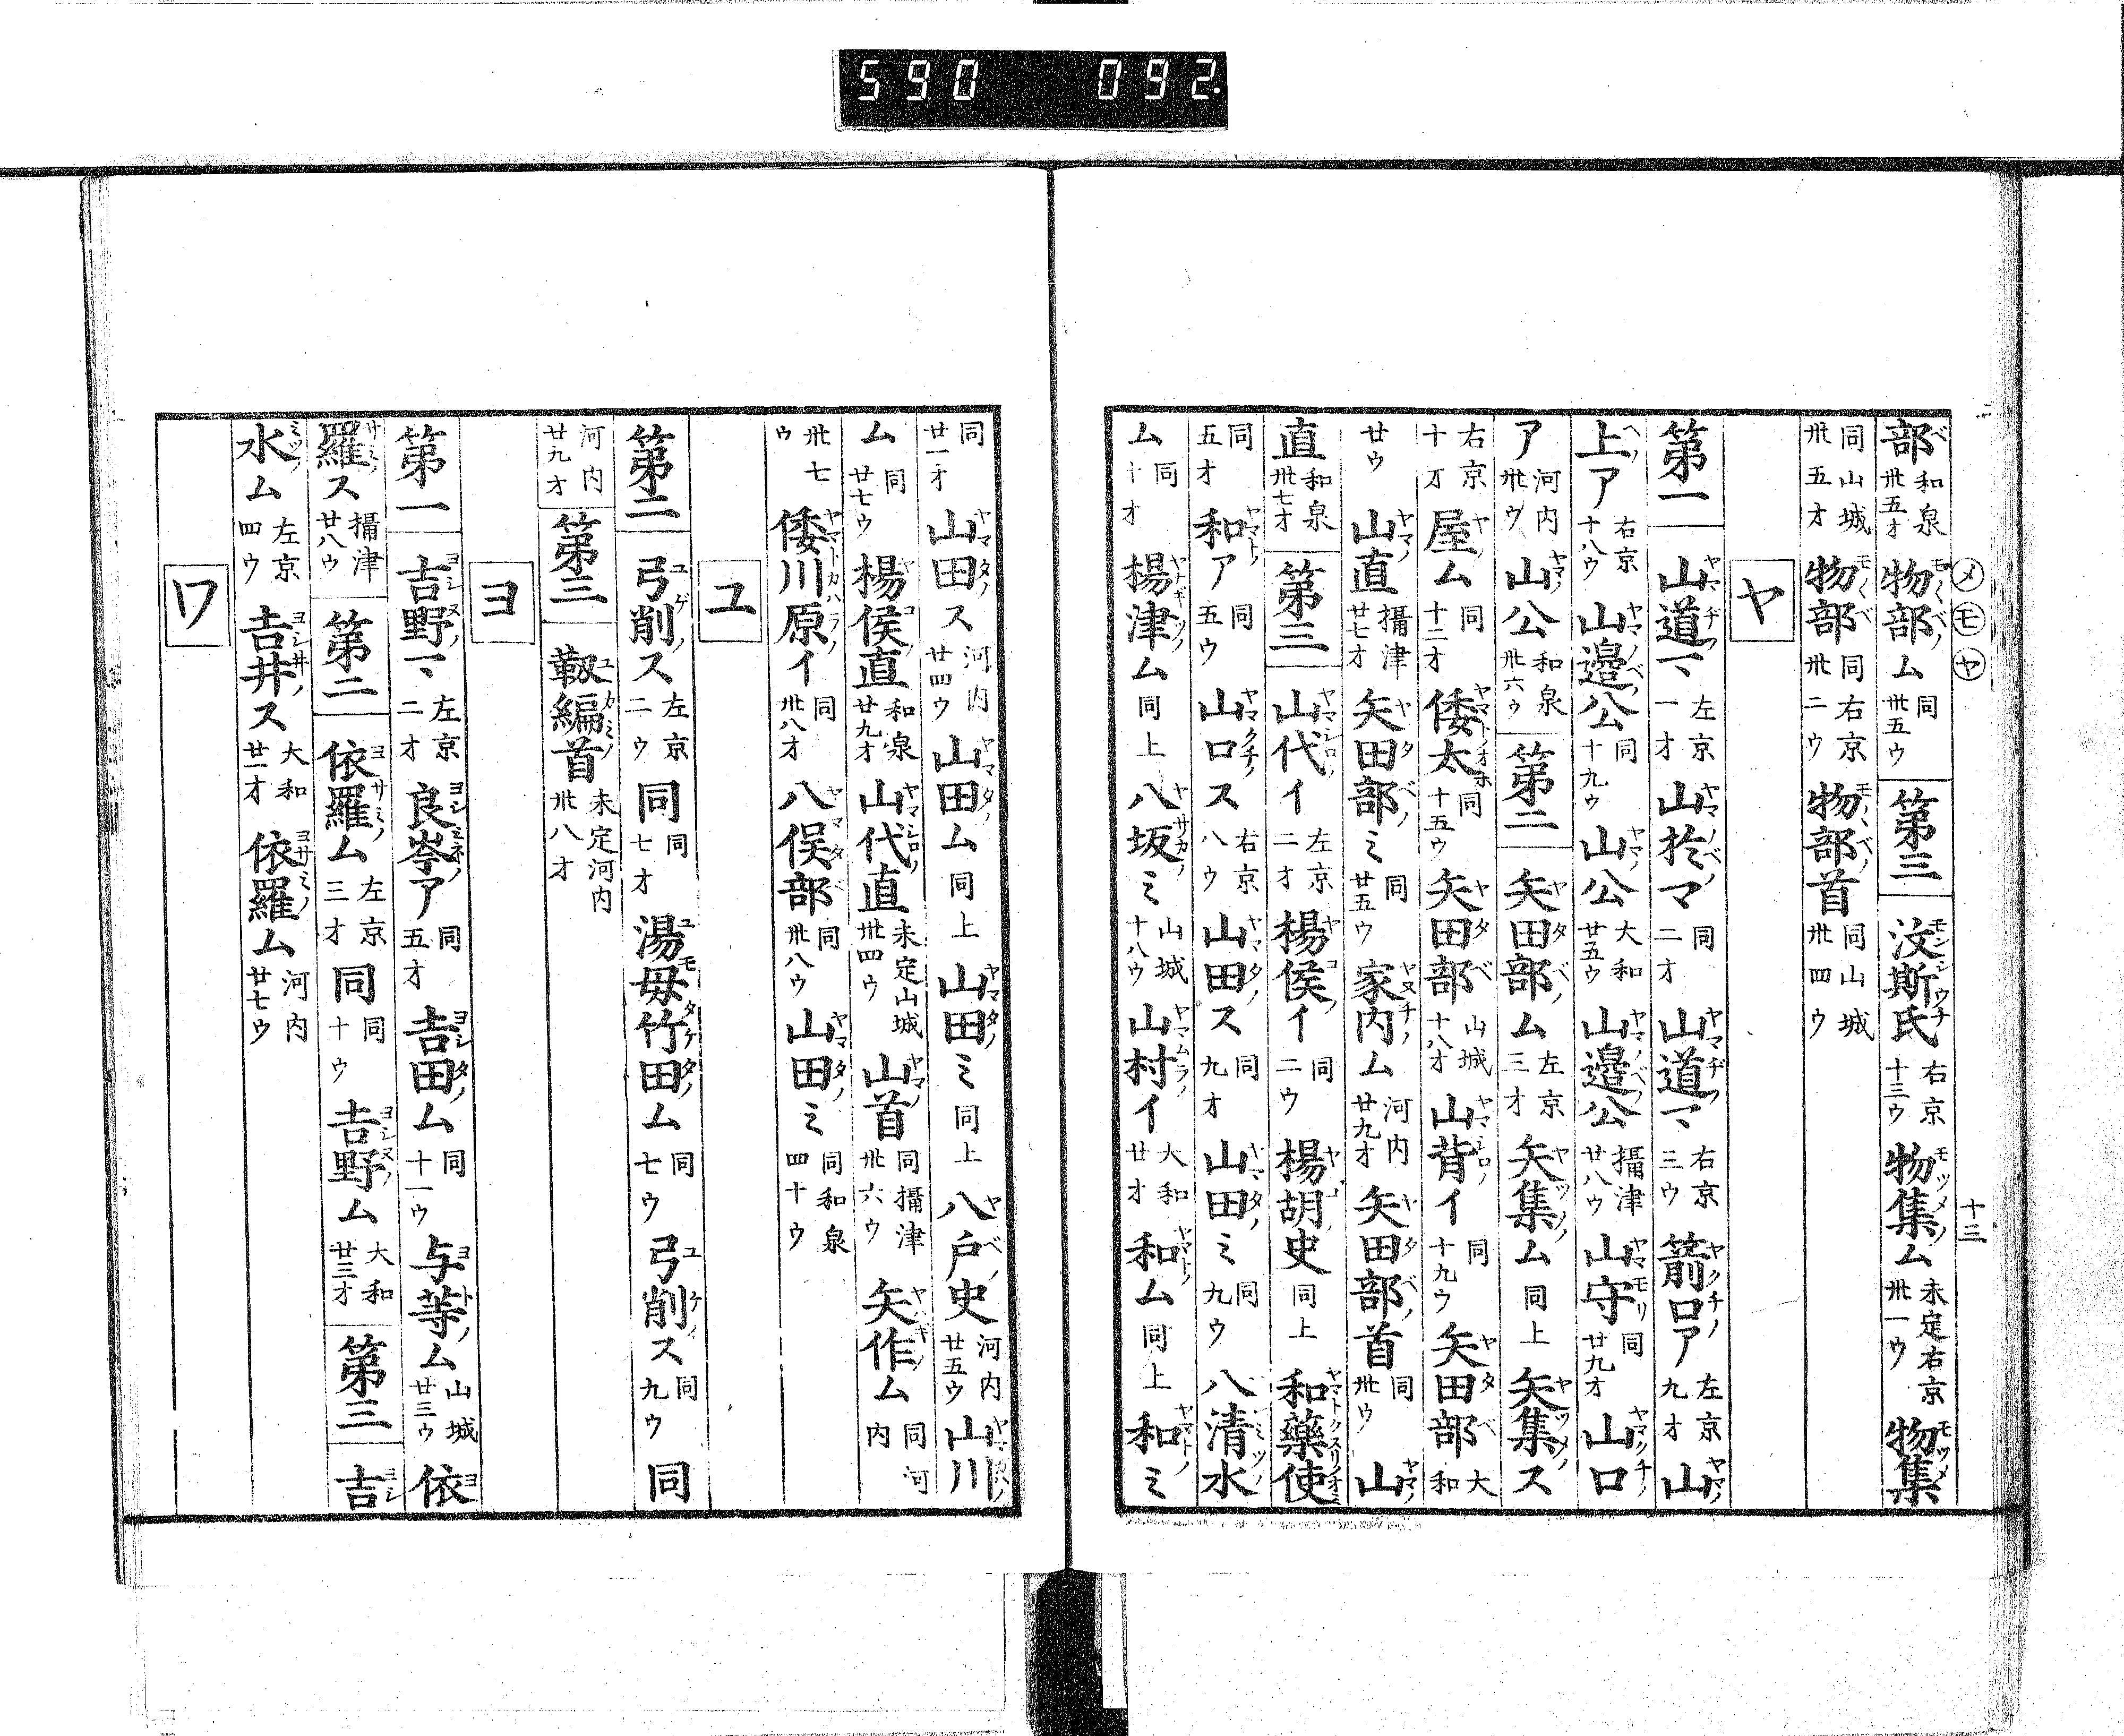 590 092.
メ モ ヤ 十三
部 和泉 卅五オ 物部ム 同 卅五ウ 第三 汶斯氏 右京 十三ウ 物集ム 未定右京 卅一ウ 物集
同山城 卅五オ 物部 同右京 卅二ウ 物部首 同山城 卅四ウ
ヤ
第一 山道マ 左京 一オ 山於マ 同 二オ 山道マ 右京 三ウ 箭口ア 左京 九オ 山
上ア 右京 十八ウ 山邉公 同 十九ウ 山公 大和 廿五ウ 山邉公 攝津 廿八ウ 山守 同 廿九オ 山口
ア 河内 卅ウ 山公 和泉 卅六ウ 第二 矢田部ム 左京 三オ 矢集ム 同上 矢集ス
右京 十オ 屋ム 同 十二オ 倭太 同 十五ウ 矢田部 山城 十八オ 山背イ 同 十九ウ 矢田部 大和
廿ウ 山直 攝津 廿七オ 矢田部ミ 同 廿五ウ 家内ム 河内 廿九オ 矢田部首 同 卅ウ 山
直 和泉 卅七オ 第三 山代イ 左京 二オ 楊侯イ 同 二ウ 楊胡史 同上 和藥使
同 五オ 和ア 同 五ウ 山口ス 右京 八ウ 山田ス 同 九オ 山田ミ 同 九ウ 八清水
ム 同 十オ 楊津ム 同上 八坂ミ 山城 十八ウ 山村イ 大和 廿オ 和ム 同上 和ミ
同 廿一オ 山田ス 河内 廿四ウ 山田ム 同上 山田ミ 同上 八戸史 河内 廿五ウ 山川
ム 同 廿七ウ 楊侯直 和泉 廿九オ 山代直 未定山城 卅四ウ 山首 同攝津 卅六ウ 矢作ム 同河内
卅七ウ 倭川原イ 同 卅八オ 八俣部 同 卅八ウ 山田ミ 同和泉 四十ウ
ユ
第二 弓削ス 左京 二ウ 同 同 七オ 湯母竹田ム 同 七ウ 弓削ス 同 九ウ 同
河内 廿九オ 第三 靱編首 未定河内 卅八オ
ヨ
第一 吉野マ 左京 二オ 良岑ア 同 五オ 吉田ム 同 十一ウ 与等ム 山城 廿三ウ 依
羅ス 攝津 廿八ウ 第二 依羅ム 左京 三オ 同 同 十ウ 吉野ム 大和 廿三オ 第三 吉
水ム 左京 四ウ 吉井ス 大和 廿一オ 依羅ム 河内 廿七ウ
ワ